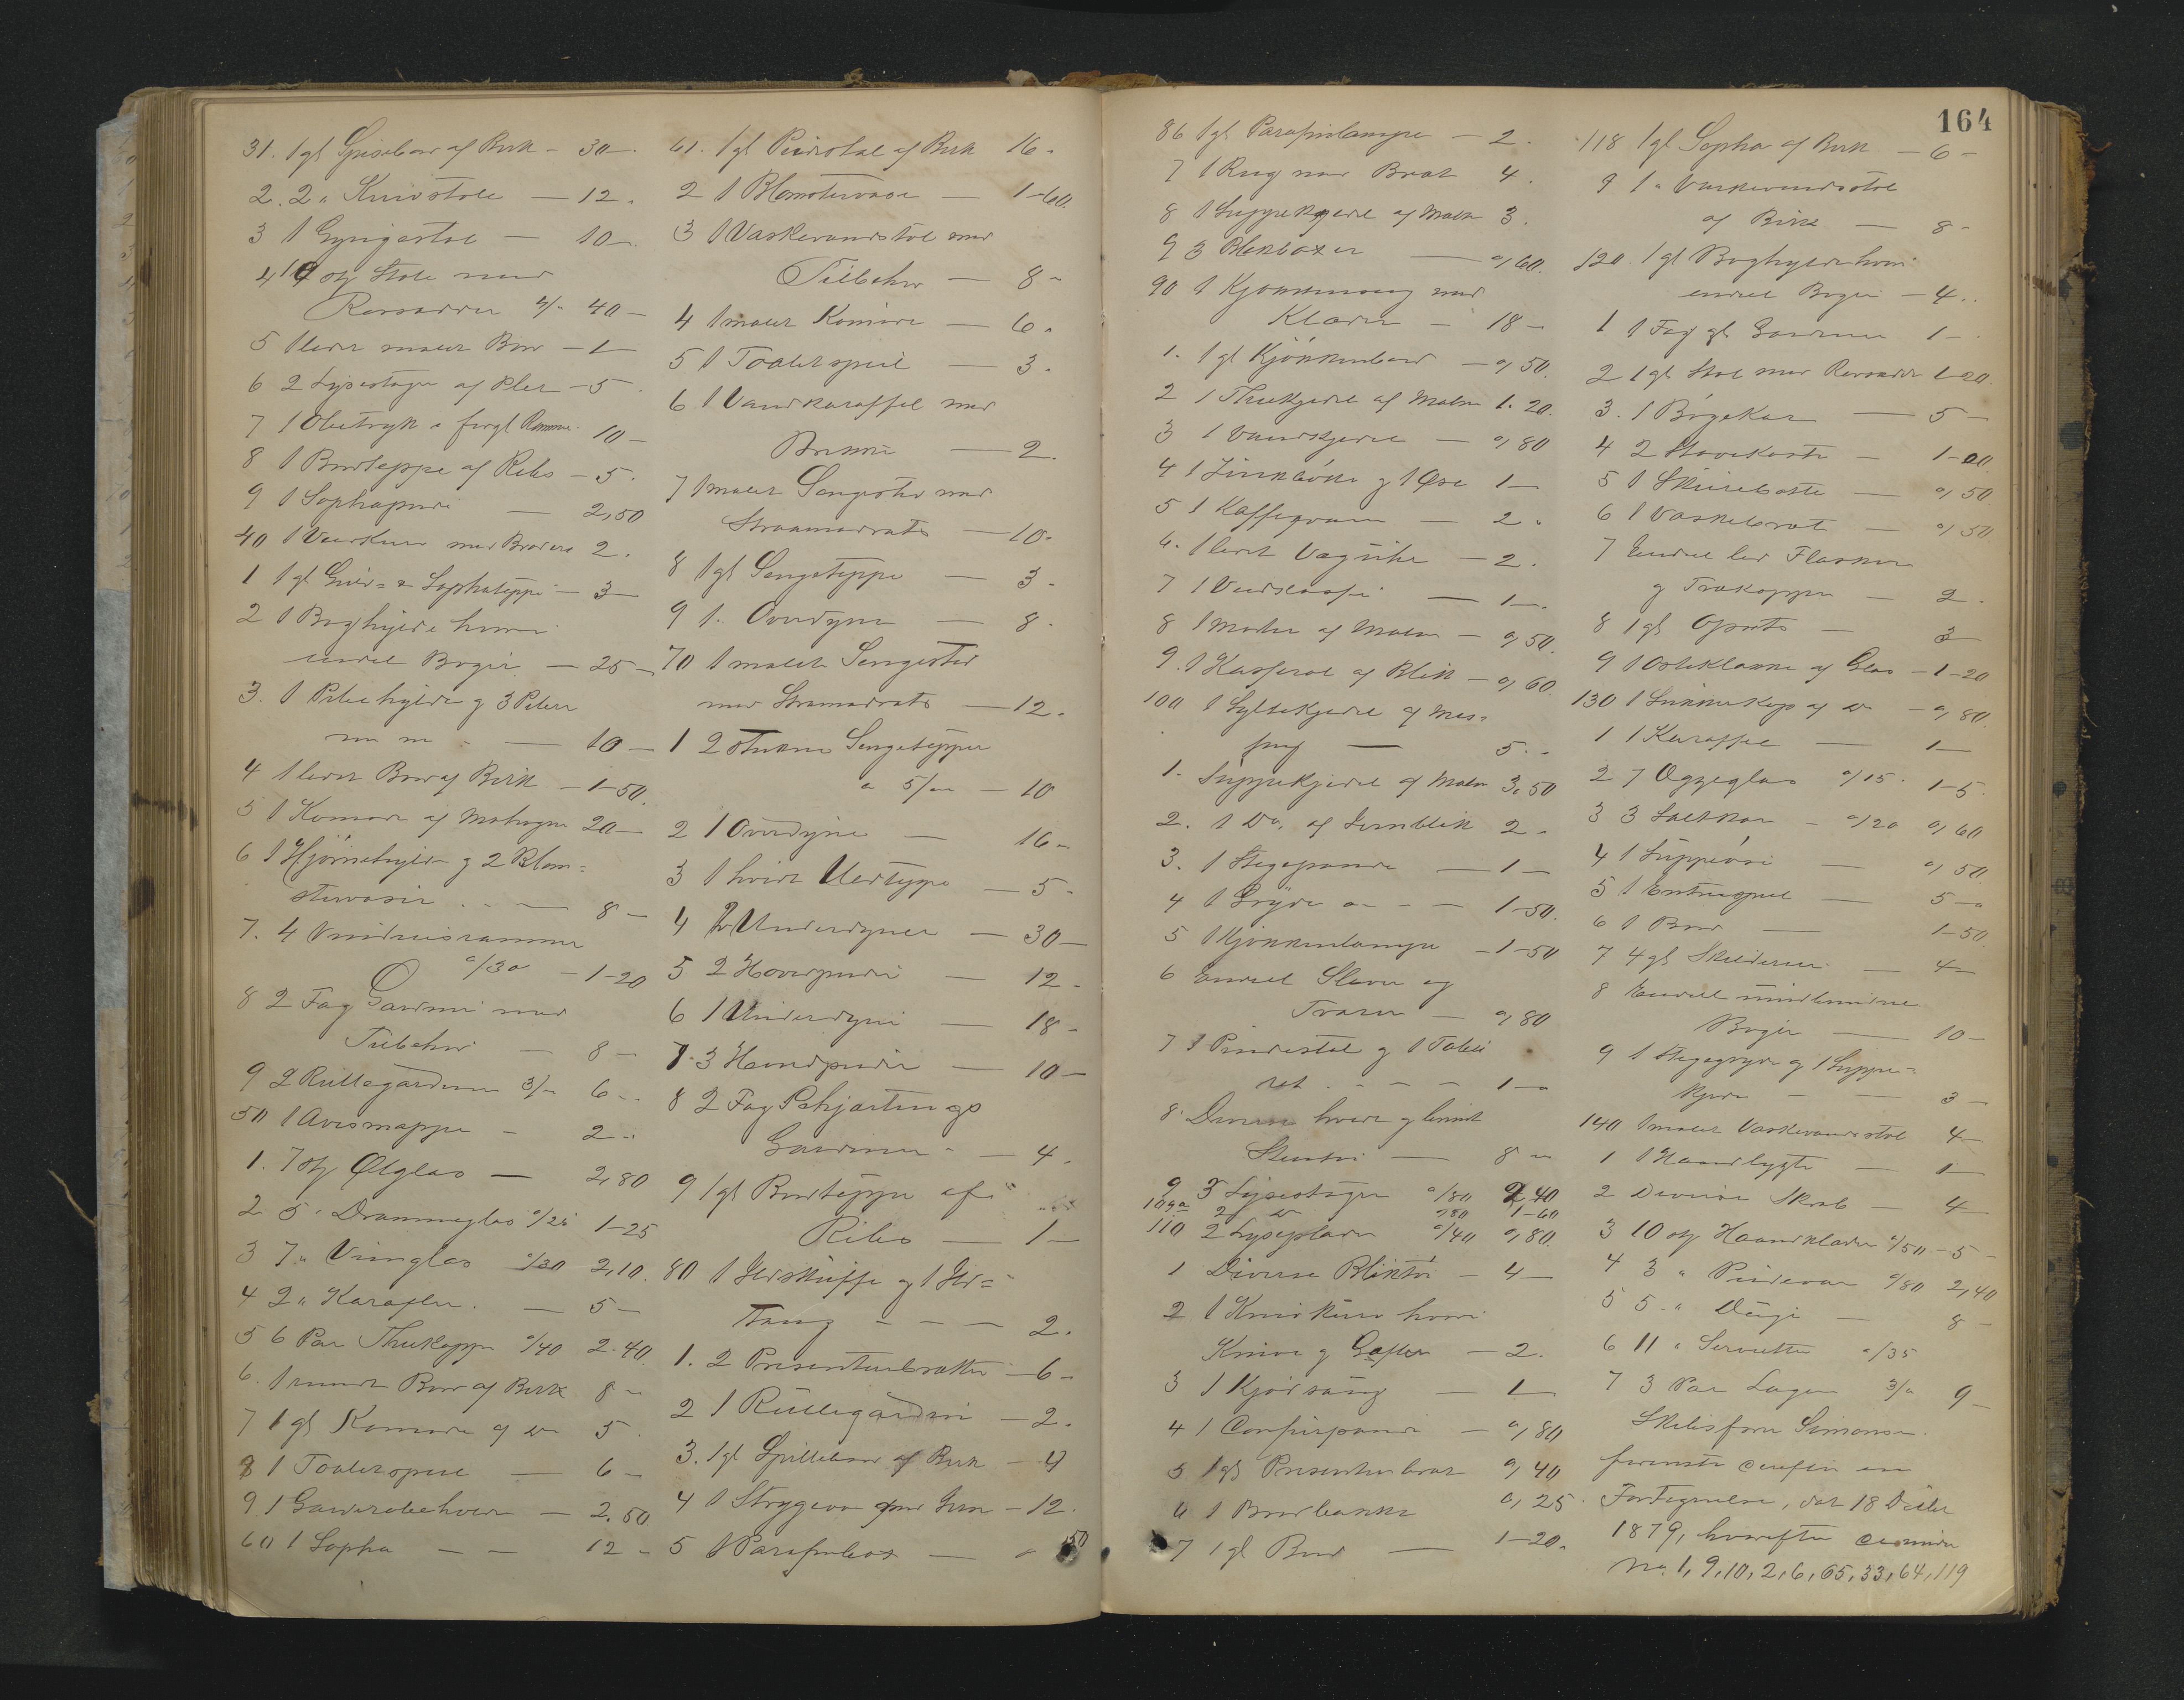 31. 1 gl Spisebord af Birk - 30 -
2. 2 " Kurvstole - 12 "
3 1 Gyngestol - 10 -
4 10 stk Stole med
4/- 40 -
5 1 lidet malet Bord - 1 -
6 2 Lysestager af Plet - 5 -
7 1 Olietryk i forgl Ramme 10 -
8 1 Bordteppe af Ribs - 5 -
9 1 Sophapude - 2,50
40 1 med Broderi 2 -
1 1 gl Gulv= & Sophateppe - 3 -
2 1 Boghylde hvori
endel Bøger - 25 -
3. 1 Pibehylde og 3 Piber
- 10 -
4 1 lidet Bord af Birk - 1-50
5 1 Komode af Mahogni 20 -
6 1 Hjørnehylde og 2 Blom=
stervaser - 8 -
7. 4 Vinduesrammer
a/30 - 1-20
8 2 Fag Gardiner med
Tilbehør - 8 -
9 2 Rullegardiner 3/- 6 -
50 1 Avismappe - 2 -
1. 7 stk Ølglas - 2,80
2 5 " Drammeglas a/25 1-25
3 7 " Vinglas a/30 2,10
4 2 " Karafler - 5 -
5 6 Par Theekopper a/40 2-40
6. 1 rundt Bord af Birk 8 -
7 1 gl Komode af do 5
8 1 Toaletspeil - 6 -
9 1 Garderobeholder - 2.50
60 1 Sopha - 12 -
61. 1 gl Puldstol af Birk 16 -
2 1 Blomstervase - 1-60
3 1 Vaskevandstol med
Tilbehør - 8 -
4 1 malet Komode - 6 -
5 1 Toaletspeil - 3 -
6 1 Vandkaraffel med
- 2.
7 1 malet Sengested med
Straamadrats - 10 -
8 1 gl Sengeteppe - 3 -
9 1 " Overdyne - 8 -
70 1 malet Sengested
med Straamadrats - 12 -
1 2 Sengetepper
a 5/- - 10
2 1 Overdyne - 16 -
3 1 hvidt Uldteppe - 5 -
4 2 Underdyner - 30 -
5 2 Hovedpuder - 12 -
6 1 Underdyne - 18 -
7 3 Hovedpuder - 10 -
8 2 Fag Schjertings
Gardiner - 4 -
9 1 gl Bordteppe af
Ribs - 1 -
80 1 Ildskuffe og 1 Ild=
tang - 2.
1. 2 Presenteerbretter - 6 -
2 1 Rullegardin - 2.
3. 1 gl Spillebord af Birk - 4
4 1 Strygeovn med Jern - 12.
5 1 - 50
164
86 1 gl Parafinlampe - 2.
7 1 Rug med Bræt 4.
8 1 Suppekjedel af Malm 3.
9 3 Blikbøxer - 0,60
90 1 Kjømmevug med
Klæder - 18 -
1. 1 gl Kjøkkenbord - 0,50
2 1 Theekjedel af Malm 1.20
3 1 Vandkjedel - 0,80
4 1 Zinkbøtte og 1 Øse 1 -
5 1 Kaffekvern - 2 -
6. 1 lidet Væguhr - 2.
7 1 Vedkasse - 1 -
8 1 Morter af Malm - 0,50
9. 1 Kasserol af Blik - 0,60
100 1 Syltekjedel af Mes=
sing - 5 -
1. Suppekjedel af Malm 3,50
2. 1 Do. af Jernblik 2 -
3. 1 Stegepande - 1 -
4 1 Gryde - 1-50
5 1 Kjøkkenlampe - 1-50
6 Endel Slever og
Tvarer - 0,80
7 1 Pindestol og 1 Tabu
ret - 1 -
8. Diverse hvidt og blaat
Stentøi - 8 -
9 3 Lysestager a/80 2,40
109a 2 do a/80 1-60
110 2 Lyseplader a/40 0,80
1 Diverse Bliktøi - 4 -
2 1 Knivkurv hvori
Knive og Gafler - 2.
3 1 Kjødsaug - 1 -
4 1 - 0,80
5 1 gl Presenteerbræt 0,40
6 1 Bordbænk 0,25
7 1 gl Bord - 1-20
118 1 gl Sopha af Birk - 6 -
9 1 " Vaskevandsstol
af Birk - 8 -
120. 1 gl Boghylde hvori
endel Bøger - 4 -
1 1 Fag gl Gardiner 1 -
2 1 gl Stol med 1-20
3. 1 Bøgekar - 5 -
4 2 Stovekoste - 1-00
5 1 Skurebøtte - 0,50
6 1 Vaskebræt - 0,50
7 Endel ler Flasker
og Trækopper - 2 -
8 1 gl - 3
9 1 Osteklokke af Glas - 1-20
130 1 Sukkerkop af do - 0,80
1 1 Karaffel - 1 -
2 7 Æggeglas a/15 1-5
3 3 Saltkar - a/20 0,60
4 1 Suppeøse - 0,50
5 1 Entrespeil - 5 -
6 1 Bord - 1-50
7 4 gl Skilderier - 4 -
8 Endel uindbundne
Bøger - 10 -
9 1 Stegegryde og 1 Suppe=
kjedel - 3 -
140 1 malet Vaskevandsstol 4 -
1 1 Haandlygte - 1 -
2 Diverse Skrab - 4 -
3 10 stk Haandklæder a/50 - 5 -
4 3 " Pudevar a/80 2,40
5 5 " Duge - 8 -
6 11 " Servietter a/35
7 3 Par Lagen 3/- 9 -
Simonsen
fremsatte en
Fortegnelse, dat 18
1879, hvorefter
No. 1, 9, 10, 2, 6, 65, 33, 64, 119